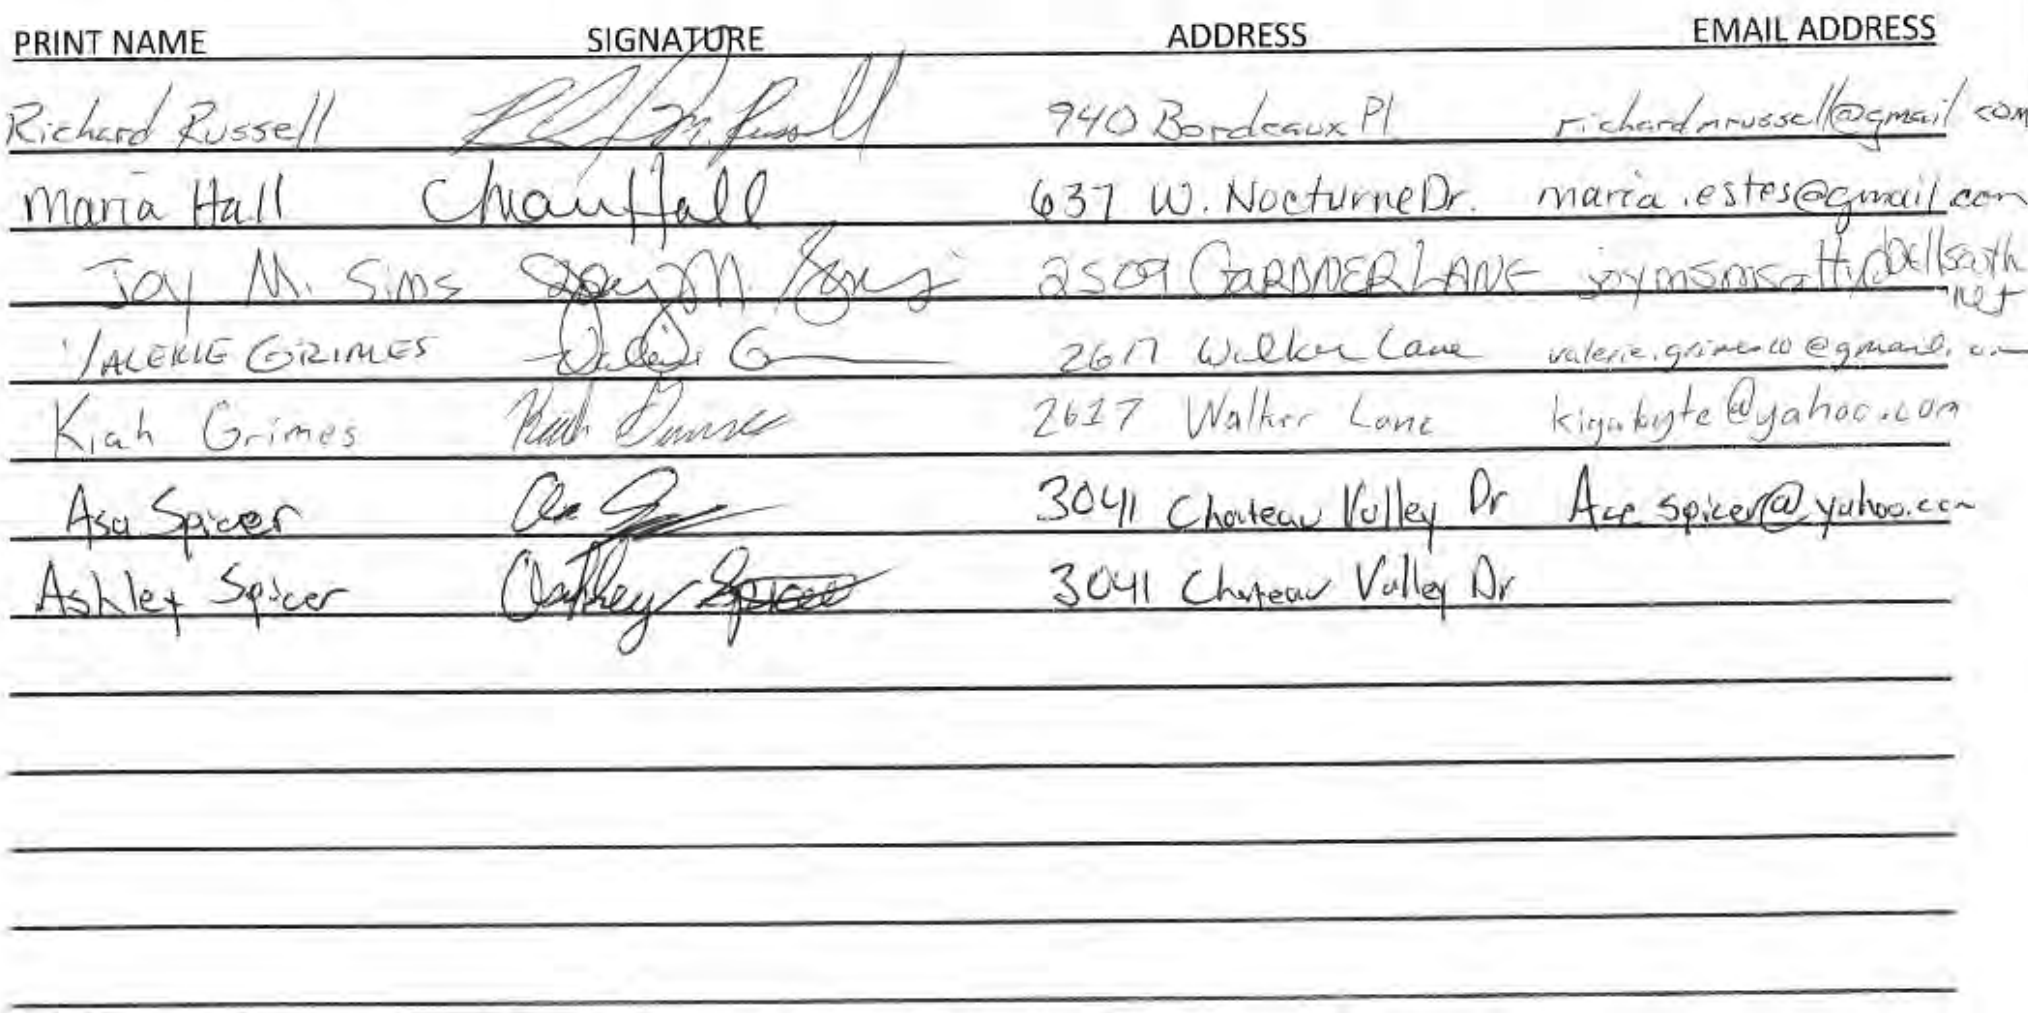 PRINT NAME SIGNATURE ADDRESS EMAIL ADDRESS
Richard Russell 940 Bordeaux Pl richardmrussell@gmail com
Maria Hall Hall 637 W. Nocturne Dr. maria.estes@gmail.com
Joy M. Sims Joy M. Sims 2509 GARDNER LANE net
VALERIE GRIMES Valerie G 2617 Walker Lane
Kiah Grimes Kiah Grimes 2617 Walker Lane kigabyte@yahoo.com
Asa Spicer 3041 Chateau Valley Dr Ace.spicer@yahoo.com
Ashley Spicer Ashley Spicer 3041 Chateau Valley Dr